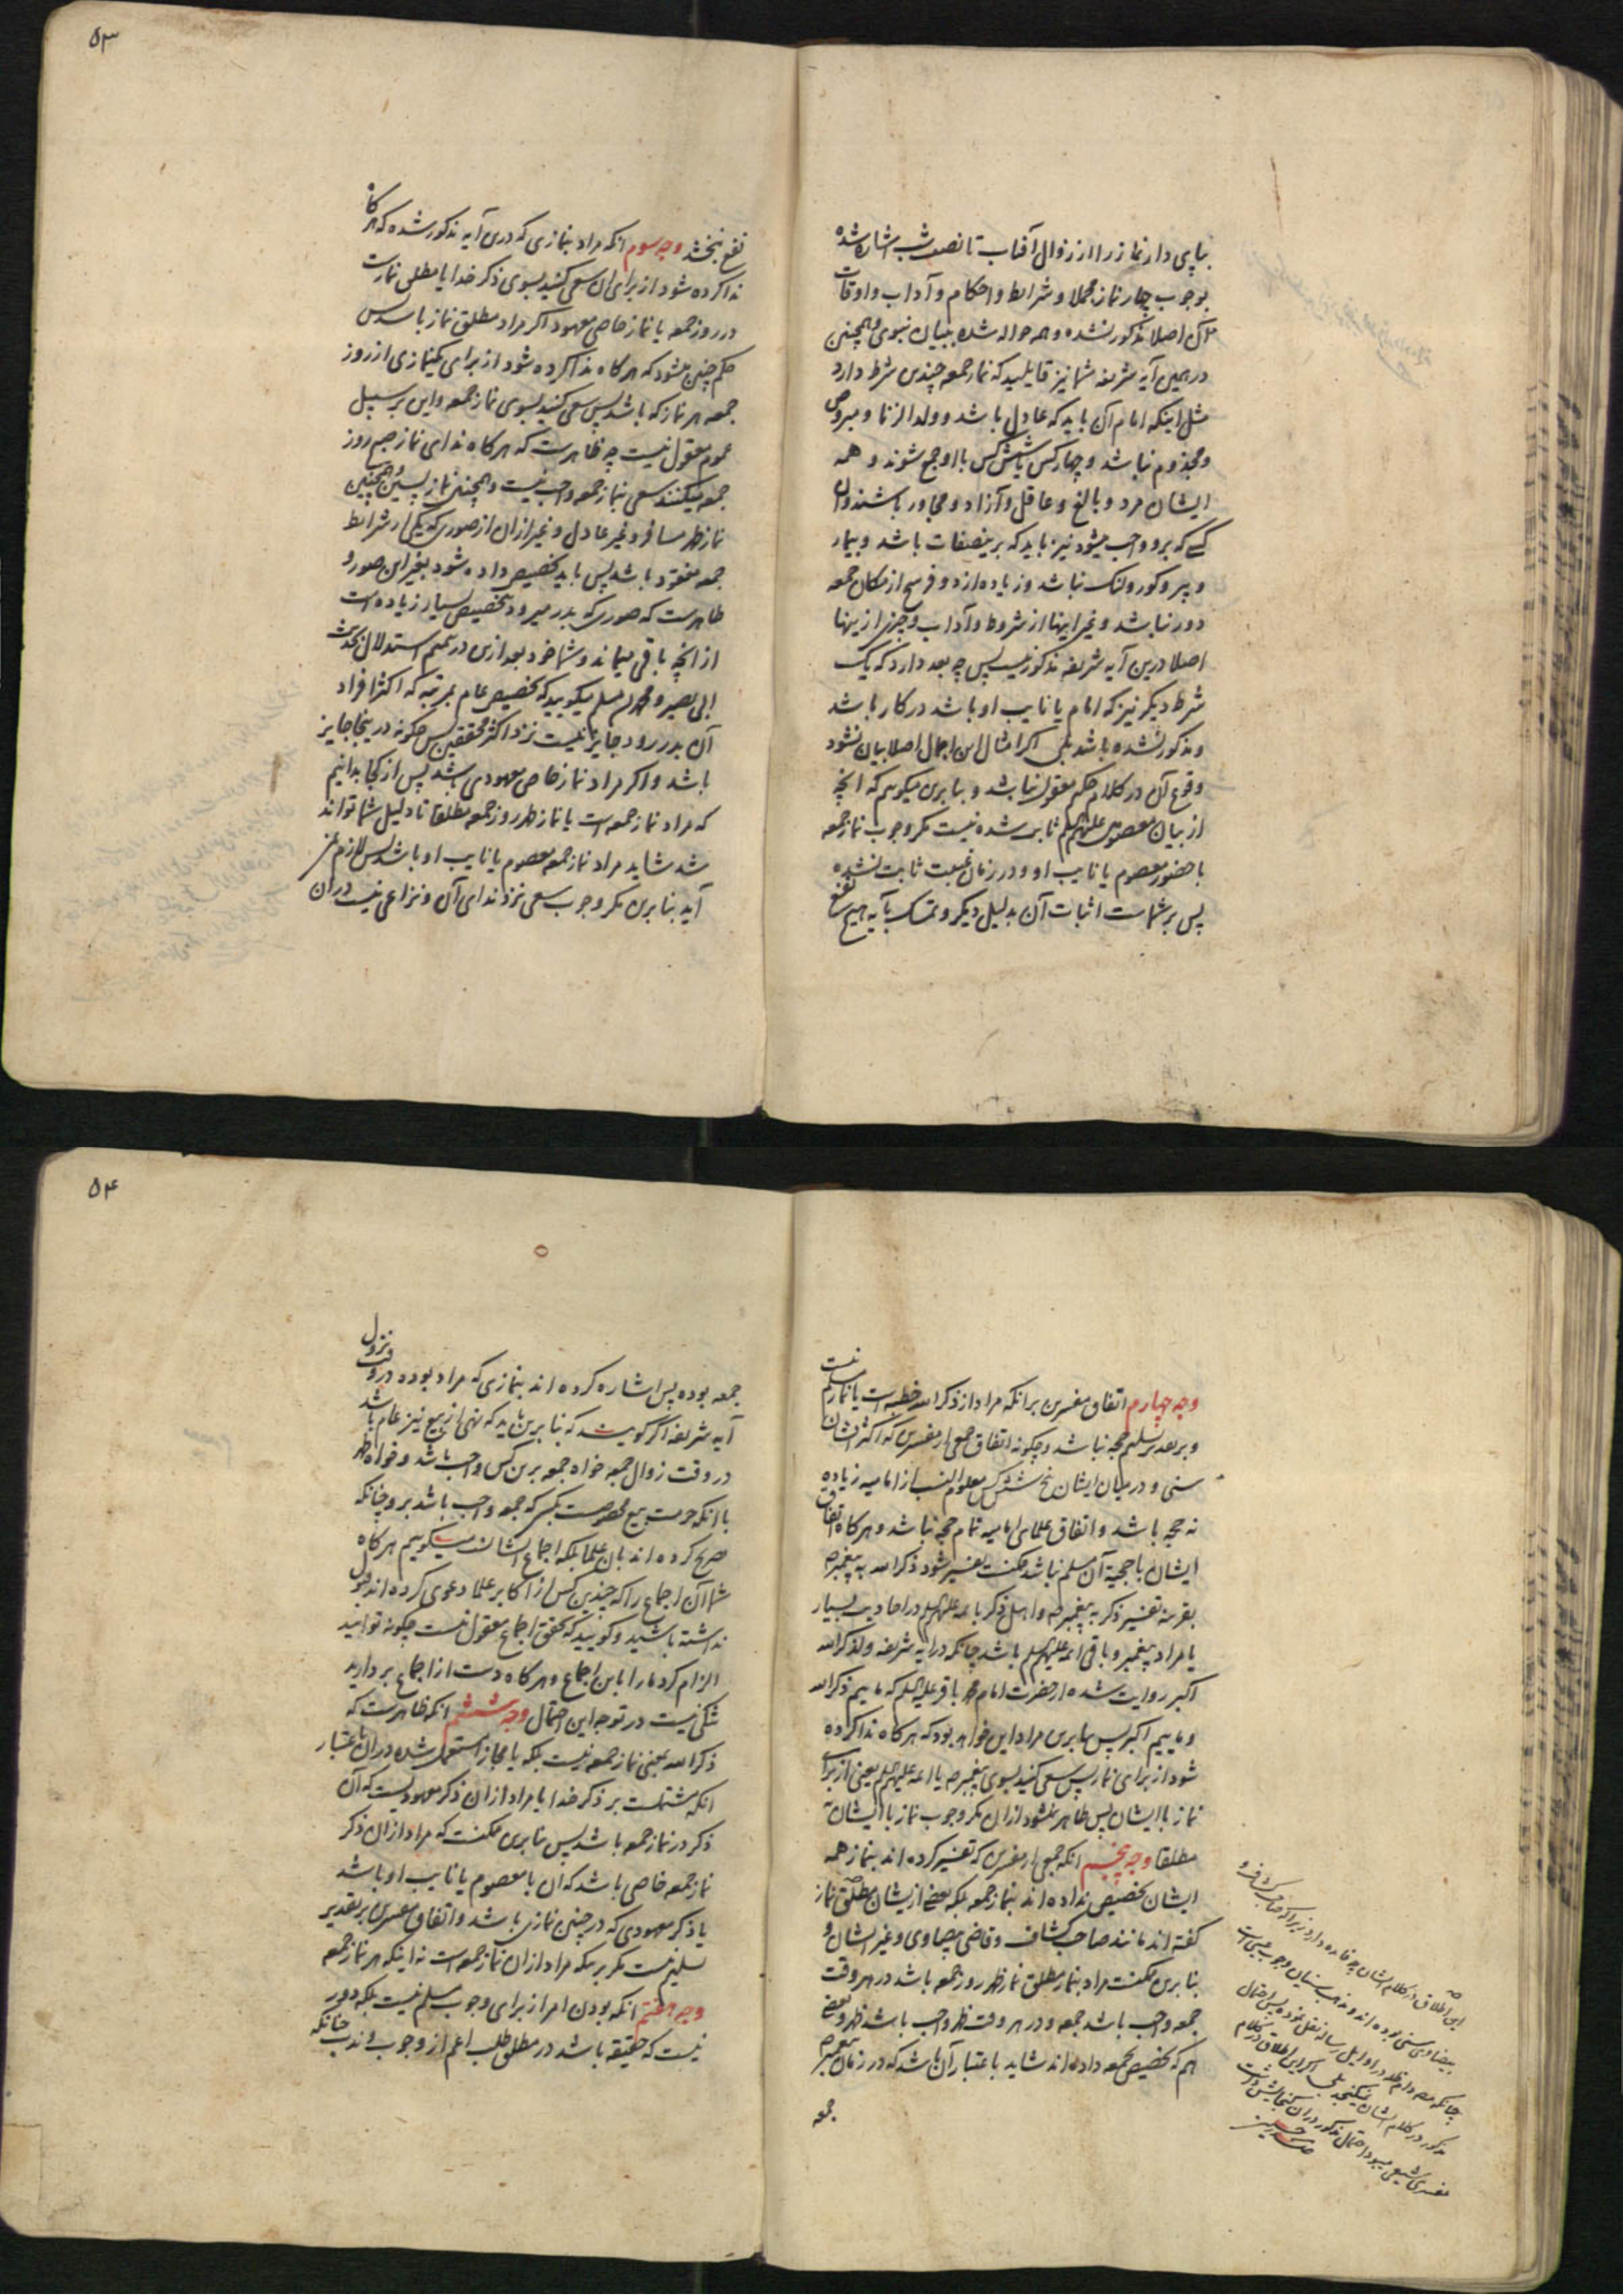 بپای دار نماز را از زوال آفتاب تا نصف شب اشاره شده
بوجوب چهار نماز مجملا و شرایط و احکام و آداب و اوقات
آن اصلا مذکور نشده و همه حواله شده ببیان نبوی و همچنین
در همین آیه شریفه شما نیز قایلید که نماز جمعه چندین شرط دارد
مثل اینکه امام آن باید که عادل باشد و ولد الزنا و مبروص
و مجذوم نباشد و چهار کس یا شش کس با او جمع شوند و همه
ایشان مرد و بالغ و عاقل و آزاد و مجاور باشند و آن
کسی که برو واجب میشود نیز باید که برینصفات باشد و بیمار
و پیر و کور و لنک نباشد و زیاده از دو فرسخ از مکان جمعه
دور نباشد و غیر اینها از شروط و آداب و چیزی ازینها
اصلا درین آیه شریفه مذکور نیست پس چه بعد دارد که یک
شرط دیگر نیز که امام یا نایب او باشد در کار باشد
و مذکور نشده باشد بلی اگر امثال این اجمال اصلا بیان نشود
وقوع آن در کلام حکیم معقول نباشد و بنابرین میگوییم که آنچه
از بیان معصومین علیهم السلم ثابت شده نیست مگر وجوب نماز جمعه
با حضور معصوم یا نایب او و در زمان غیبت ثابت نشده
پس بر شماست اثبات آن بدلیل دیگر و تمسک بآیه هیچ نفع
۵۳
نفع نبخشد وجه سوم آنکه مراد بنمازی که درین آیه مذکور شده که هر کاه
ندا کرده شود از برای آن سعی کنید بسوی ذکر خدا یا مطلق نمازست
در روز جمعه یا نماز خاصی معهود اگر مراد مطلق نماز باشد پس
حکم چنین میشود که هر کاه ندا کرده شود از برای یکنمازی از روز
جمعه هر نماز که باشد پس سعی کنید بسوی نماز جمعه و این بر سبیل
عموم معقول نیست چه ظاهرست که هر کاه ندای نماز صبح روز
جمعه میکنند سعی بنماز جمعه واجب نیست و همچنین نماز پسین و همچنین
نماز ظهر مسافر و غیر عادل و غیر ازان از صوری که یکی از شرایط
جمعه مفقود باشد پس باید تخصیص داده شود بغیر این صور و
ظاهرست که صوری که بدر میرود بتخصیص بسیار زیاده است
از انچه باقی میماند و شما خود بعد ازین در تتمیم استدلال بحدیث
ابی بصیر و محمد بن مسلم میگویید که تخصیص عام بمرتبه که اکثر افراد
آن بدر رود جایز نیست نزد اکثر محققین پس چگونه در ینجا جایز
باشد و اگر مراد نماز خاص معهودی باشد پس از کجا بدانیم
که مراد نماز جمعه است یا نماز ظهر روز جمعه مطلقا تا دلیل شما تواند
شد شاید مراد نماز جمعه معصوم یا نایب او باشد پس لازم نمی
آید بنابرین مگر وجوب سعی نزد ندای آن و نزاعی نیست دران
وجه چهارم اتفاق مفسرین بر انکه مراد از ذکر الله خطبه است یا نماز مسلم نیست
و بر تقدیر تسلیم حجه نباشد و چگونه اتفاق جمعی از مفسرین که اکثر ایشان
سنی و در میان ایشان پنج شش کس معلوم النسب از امامیه زیاده
نه حجه باشد و اتفاق علمای امامیه تمام حجه نباشد و هر کاه اتفاق
ایشان یا حجیة آن مسلم نباشد ممکنست تفسیر شود ذکر الله به پیغمبر ص
بقرینه تفسیر ذکر به پیغمبر ص و اهل ذکر بائمه علیهم السلم در احادیث بسیار
یا مراد پیغمبر و باقی ائمه علیهم السلم باشد چنانکه در آیه شریفه و لذکر الله
اکبر روایت شده از حضرت امام محمد باقر علیه السلم که ماییم ذکر الله
و ماییم اکبر پس بنابرین مراد این خواهد بود که هر کاه ندا کرده
شود از برای نماز پس سعی کنید بسوی پیغمبر ص یا ائمه علیهم السلم یعنی از برای
نماز با ایشان پس ظاهر نمیشود ازان مگر وجوب نماز با ایشان نه
مطلقا وجه پنجم انکه جمعی از مفسرین که تفسیر کرده اند بنماز همه
ایشان تخصیص نداده اند بنماز جمعه بلکه بعضی از یشان مطلق نماز
گفته اند مانند صاحب کشاف و قاضی بیضاوی و غیر ایشان و
بنابرین ممکنست مراد بنماز مطلق نماز ظهر روز جمعه باشد در هر وقت
جمعه واجب باشد جمعه و در هر وقت ظهر واجب باشد ظهر و بعضی
هم که تخصیص بجمعه داده اند شاید باعتبار آن باشد که در زمان پیغمبر ص
جمعه
این اطلاق در کلام ایشان چه فایده دارد زیرا که صاحب کشاف و
بیضاوی سنی بوده اند و مذهب سنیان وجوب عینی است
چنانکه مصنف دام ظله در اوایل رساله نقل نموده پس احتمال
مذکور در کلام ایشان نمیگنجد بلی اگر این اطلاق در کلام
مفسری شیعی میبود احتمال مذکور دران گنجایش داشت
۵۴
جمعه بوده پس اشاره کرده اند بنمازی که مراد بوده در وقت نزول
آیه شریفه اگر گویند که بنابرین باید که نهی از بیع نیز عام باشد
در وقت زوال جمعه خواه جمعه برین کس واجب باشد و خواه ظهر
با انکه حرمت بیع مخصوصست بکسی که جمعه واجب باشد برو چنانکه
تصریح کرده اند بان علما بلکه اجماع ایشانست میگوییم هر کاه
شما آن اجماع را که چندین کس از اکابر علما دعوی کرده اند قبول
نداشته باشید و گویید که تحقق اجماع معقول نیست چگونه توانید
الزام کرد ما را باین اجماع و هر کاه دست از اجماع بردارید
شکی نیست در توجه این احتمال وجه ششم انکه ظاهرست که
ذکر الله بمعنی نماز جمعه نیست بلکه یا مجازا مستعمل شده دران باعتبار
انکه مشتملست بر ذکر خدا یا مراد ازان ذکر معهودیست که آن
ذکر در نماز جمعه باشد پس بنابرین ممکنست که مراد ازان ذکر
نماز جمعه خاصی باشد که ان با معصوم یا نایب او باشد
یا ذکر معهودی که در چنین نمازی باشد و اتفاق مفسرین بر تقدیر
تسلیم نیست مگر برینکه مراد ازان نماز جمعه است نه اینکه هر نماز جمعه
وجه هفتم انکه بودن امر از برای وجوب مسلم نیست بلکه دور
نیست که حقیقه باشد در مطلق طلب اعم از وجوب و ندب چنانکه